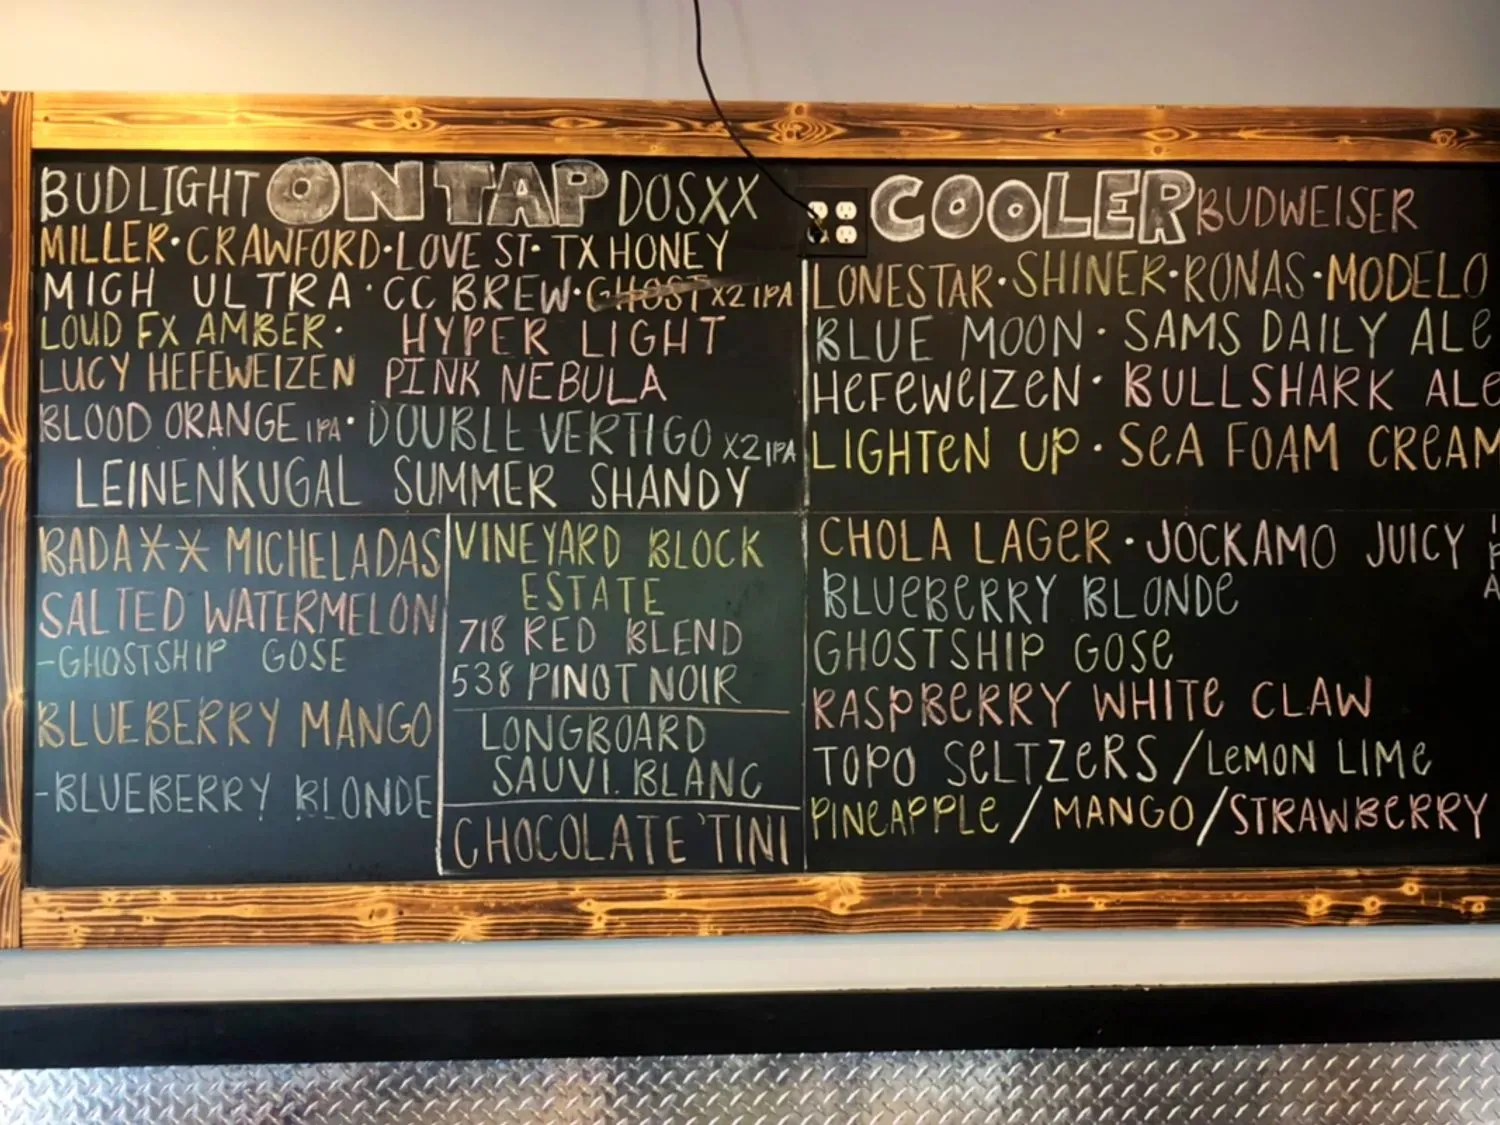 BUD LIGHT ON TAP DOS XX
MILLER · CRAWFORD · LOVE ST · TX HONEY
MICH ULTRA · CC BREW · GHOST X2 IPA
LOUD FX AMBER · HYPER LIGHT
LUCY HEFEWEIZEN PINK NEBULA
BLOOD ORANGE IPA · DOUBLE VERTIGO X2 IPA
LEINENKUGAL SUMMER SHANDY
BADA** MICHELADAS
SALTED WATERMELON
-GHOSTSHIP GOSE
BLUEBERRY MANGO
-BLUEBERRY BLONDE
VINEYARD BLOCK
ESTATE
718 RED BLEND
538 PINOT NOIR
LONGBOARD
SAUVI. BLANC
CHOCOLATE 'TINI
COOLER BUDWEISER
LONESTAR · SHINER · RONAS · MODELO
BLUE MOON · SAMS DAILY ALe
HeFeWeIZeN · BULLSHARK ALe
LIGHTeN UP · SeA FOAM CReAM
CHOLA LAGeR · JOCKAMO JUICY IPA
BLUeBeRRY BLONDe
GHOSTSHIP GOSe
RASPBeRRY WHITe CLAW
TOPO SeLTZeRS / LeMON LIMe
PINeAPPLe / MANGO / STRAWBeRRY